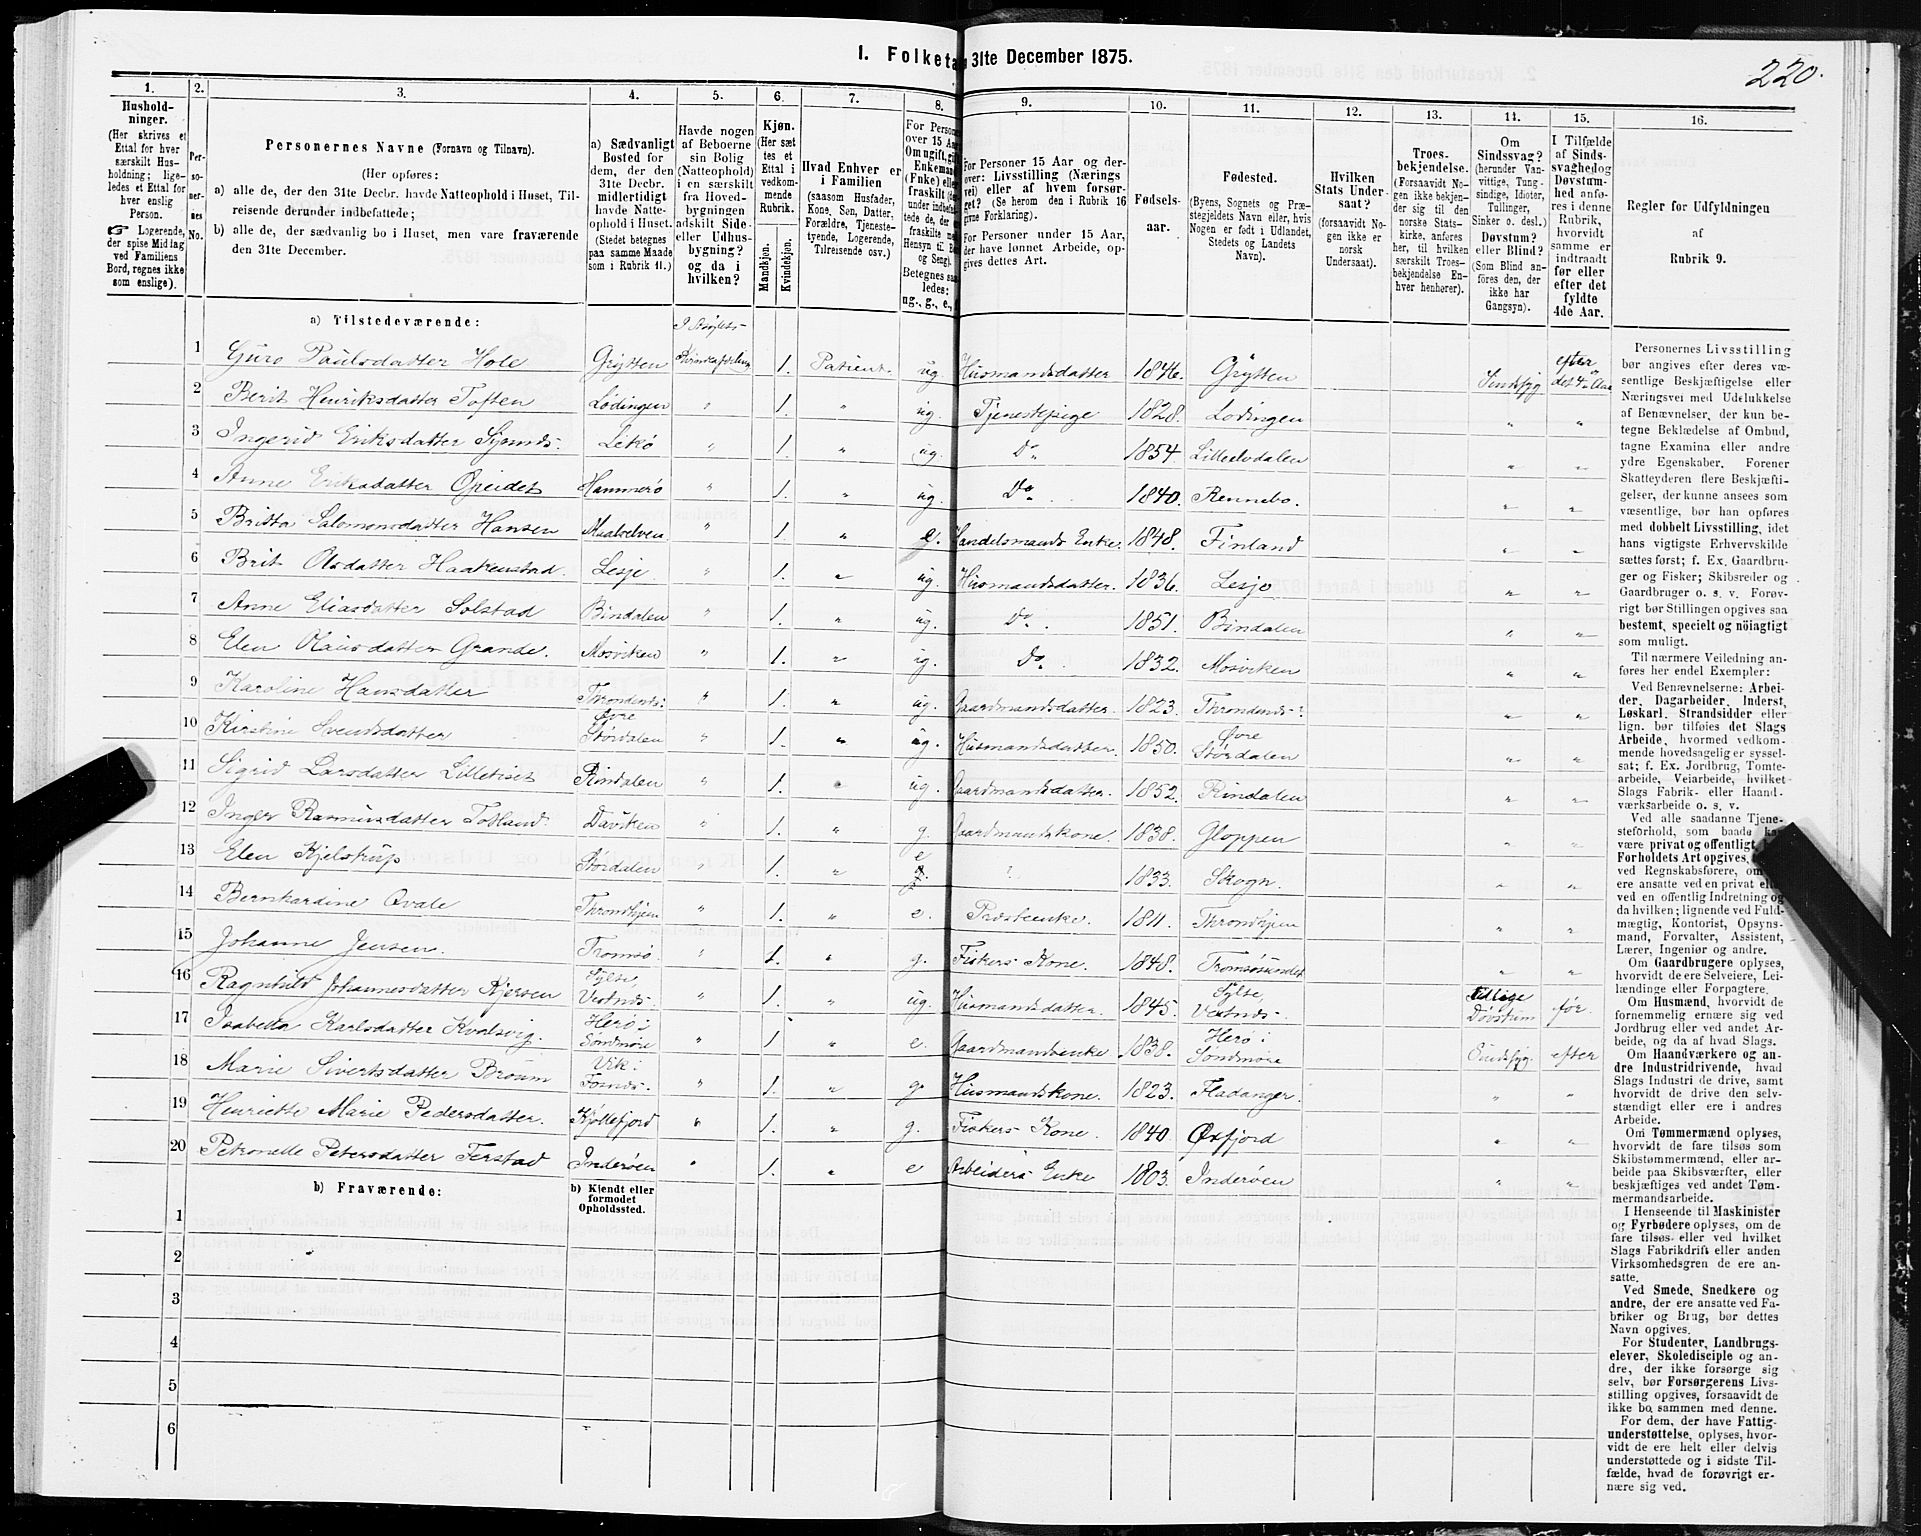 1. Folketa 31te December 1875.
220.
1.
Hushold-
ninger.
(Her skrives et
Ettal for hver
særskilt Hus-
holdning; lige-
ledes et Ettal for
hver enslig
Person.
☞ Logerende,
der spise Middag
ved Familiens
Bord, regnes ikke
som enslige).
2.
Per-
so-
ner-
nes
No.
3.
Personernes Navne (Fornavn og Tilnavn).
(Her opføres:
a) alle de, der den 31te Decbr. havde Natteophold i Huset, Til-
reisende derunder indbefattede;
b) alle de, der sædvanlig bo i Huset, men vare fraværende
den 31te December.
4.
a) Sædvanligt
Bosted for
dem, der den
31te Decbr.
midlertidigt
havde Natte-
ophold i Huset.
(Stedet betegnes
paa samme Maade
som i Rubrik 11.)
5.
Havde nogen
af Beboerne
sin Bolig
(Natteophold)
i en særskilt
fra Hoved-
bygningen
adskilt Side-
eller Udhus-
bygning?
og da i
hvilken?
6.
Kjøn.
(Her sæt
tes et
Ettal i
vedkom-
mende
Rubrik.
Mandkjøn.
Kvindekjøn.
7.
Hvad Enhver er
i Familien
(saasom Husfader,
Kone, Søn, Datter,
Forældre, Tjeneste-
tyende, Logerende,
Tilreisende osv.)
8.
For Person
over 15 Aar
Om ugift, gi
Enkeman
(Enke) elle
fraskilt
under indbefat-
tede de, der
fraskilte me
Hensyn til Bo
og Seng).
Betegnes saa
ledes:
ug., g., e.,
9.
For Personer 15 Aar og der-
over: Livsstilling (Nærings
vei) eller af hvem forsør-
get? (Se herom den i Rubrik 16
givne Forklaring).
For Personer under 15 Aar,
der have lønnet Arbeide, op-
gives dettes Art.
10.
Fødsels-
aar.
11.
Fødested.
(Byens, Sognets og Præ-
stegjeldets Navn eller, hvis
Nogen er født i Udlandet,
Stedets og Landets
Navn).
12.
Hvilken
Stats Under-
saat?
(forsaavidt No-
gen ikke er
norsk
Undersaat).
13.
Troes-
bekjendelse.
(Forsaavidt No-
gen ikke bekjen-
der sig til den
norske Stats-
kirke, anføres
her, til hvilken
særskilt Troes-
bekjendelse En-
hver henhører).
14.
Om
Sindssvag?
(herunder Van-
vittige, Tung-
sindige, Idioter,
Tullinger,
Sinker o. desl.).
Døvstum?
eller Blind?
(Som Blind an-
føres den, der
ikke har
Gangsyn).
15.
I Tilfælde
af Sinds-
svaghed og
Døvstum-
hed anfø-
res i denne
Rubrik,
hvorvidt
samme er
indtraadt
før eller
efter det
fyldte
4de Aar.
16.
Regler for Udfyldningen
af
Rubrik 9.
a) Tilstedeværende:
1 Guro Paulsdatter Hole Grytten 1. Patient ug. Husmandsdatter 1846. Grytten Sindssyg efter det 4de Aar
2 Berit Henriksdatter Toften Lødingen " 1. " ug. Tjenestepige 1828. Lodingen " "
3 Ingerid Eriksdatter Leko " 1. " ug. Do 1854. Lilleelvdalen " "
4 Anne Eriksdatter Opeidet Hammerø " 1. " ug. Do. 1840. Rennebo. " "
5 Britta Salomonsdatter Hansen Maalselven " 1. " e. Handelsmands Enke. 1848. Finland " "
6 Brit Olsdatter Haakenstad. Lesje " 1. " ug. Husmandsdatter. 1836. Lesjo " "
7 Anne Eliasdatter Solstad Bindalen " 1. " ug. Do. 1851. Bindalen " "
8 Elen Olausdatter Grande. Mosviken " 1. " ug. Do. 1832. Mosviken " "
9 Karoline Hansdatter Throndenæs: " 1. " ug. Gaardmandsdatter. 1823. Throndenæs: " "
10 Kirstine Svendsdatter Øvre Størdalen " 1. " ug. Husmandsdatter. 1850. Øvre Størdalen " "
11 Sigrid Larsdatter Lilletiset Rindalen " 1. " ug. Gaardmandsdatter. 1852. Rindalen " "
12 Inger Rasmusdatter Totland. Daviken " 1. " g. Gaardmandskone. 1838. Gloppen " "
13 Elen Kjelstrup Størdalen " 1. " e " 1833. Skogn. " "
14 Bernhardine Qvale Throndhjem " 1. " e. Præsteenke. 1811. Throndhjem " "
15 Johanne Jensen. Tromsø. " 1. " g. Fiskers Kone. 1848. Tromsøsundet " "
16 Ragnhild Johannesdatter Kjersen Sylte, Vestnæs. " 1. " ug. Husmandsdatter. 1845. Sylte, Vestnæs. Tidlige Døvstum før.
17 Isabella Karlsdatter Kvalsvig. Herø i Søndmøre " 1 " e. Gaardmandsenke 1838. Herø i Søndmøre Sindssyg efter
18 Marie Sivertsdatter Broum Vik: " 1. " g. Husmandskone. 1823. Fladanger. " "
19 Henriette Marie Pedersdatter. Kjøllefjord " 1. " g. Fiskers Kone. 1840. Øxfjord " "
20 Petronelle Petersdatter Ferstad Inderøen " 1. " e Arbeiders Enke 1803. Inderøen " "
b) Fraværende:
b) Kjendt eller
formodet
Opholdssted.
1
2
3
4
5
6
Personernes Livsstilling
bør angives efter deres væ-
sentlige Beskjæftigelse eller
Næringsvei med Udelukkelse
af Benævnelser, der kun be-
tegne Beklædelse af Ombud,
tagne Examina eller andre
ydre Egenskaber. Forener
Skatteyderen flere Beskjæfti-
gelser, der kunne ansees som
væsentlige, bør han opføres
med dobbelt Livsstilling, idet
hans vigtigste Erhvervskilde
sættes først; f. Ex. Gaardbru-
ger og Fisker; Skibsreder og
Gaardbruger o. s. v. Forøv-
rigt bør Stillingen opgives saa
bestemt, specielt og nöiagtigt
som muligt.
Til nærmere Veiledning an-
føres her endel Exempler:
Ved Benævnelserne: Arbei-
der, Dagarbeider, Inderst,
Løskarl, Strandsidder eller
lign. bør tilføies det Slags
Arbeide, hvormed vedkom-
mende hovedsagelig er syssel-
sat; f. Ex. Jordbrug, Tomte-
arbeide, Veiarbeide, hvilket
Slags Fabrik- eller Haand-
værksarbeide o. s. v.
Ved alle saadanne Tjene-
steforhold, som baade ka
være privat og offentligt,
Forholdets Art opgives,
ved Regnskabsførere, om
ere ansatte ved en privat el
ved en offentlig Indretning og
da hvilken; lignende ved Fuld-
mægtig, Kontorist, Opsyns-
mand, Forvalter, Assistent,
Lærer, Ingeniør og andre.
Om Gaardbrugere oplyses,
hvorvidt de ere Selveiere, Lei-
lændinge eller Forpagtere.
Om Husmænd, hvorvidt de
fornemmelig ernære sig ved
Jordbrug eller ved andet Ar-
beide, og da af hvad Slags.
Om Haandværkere og an-
dre Industridrivende, hvad
Slags Industri de drive, samt
hvorvidt de drive den selv-
stændigt eller ere i andres
Arbeide.
Om Tømmermænd oplyses,
hvorvidt de fare tilsøs som
Skibstømmermænd, eller ar-
beide paa Skibsværfter, eller
beskjæftiges ved andet Tøm-
mermandsarbeide.
I Henseende til Maskinister
og Fyrbødere oplyses, om de
fare tilsøs eller ved hvilket
Slags Fabrikdrift eller anden
Virksomhedsgren de ere an-
satte.
Ved Smede, Snedkere og
andre, der ere ansatte ved Fa-
briker og Brug, bør dettes
Navn opgives.
For Studenter, Landbrugs-
elever, Skoledisciple og an-
dre, der ikke forsørge sig
selv, bør Forsørgerens Livs-
stilling opgives, forsaavidt de
ikke bo sammen med denne.
For dem, der have Fattig-
understøttelse, oplyses, hvor-
vidt de ere helt eller delvis
understøttede og i sidste Til-
fælde, hvad de forøvrigt er-
nære sig ved.